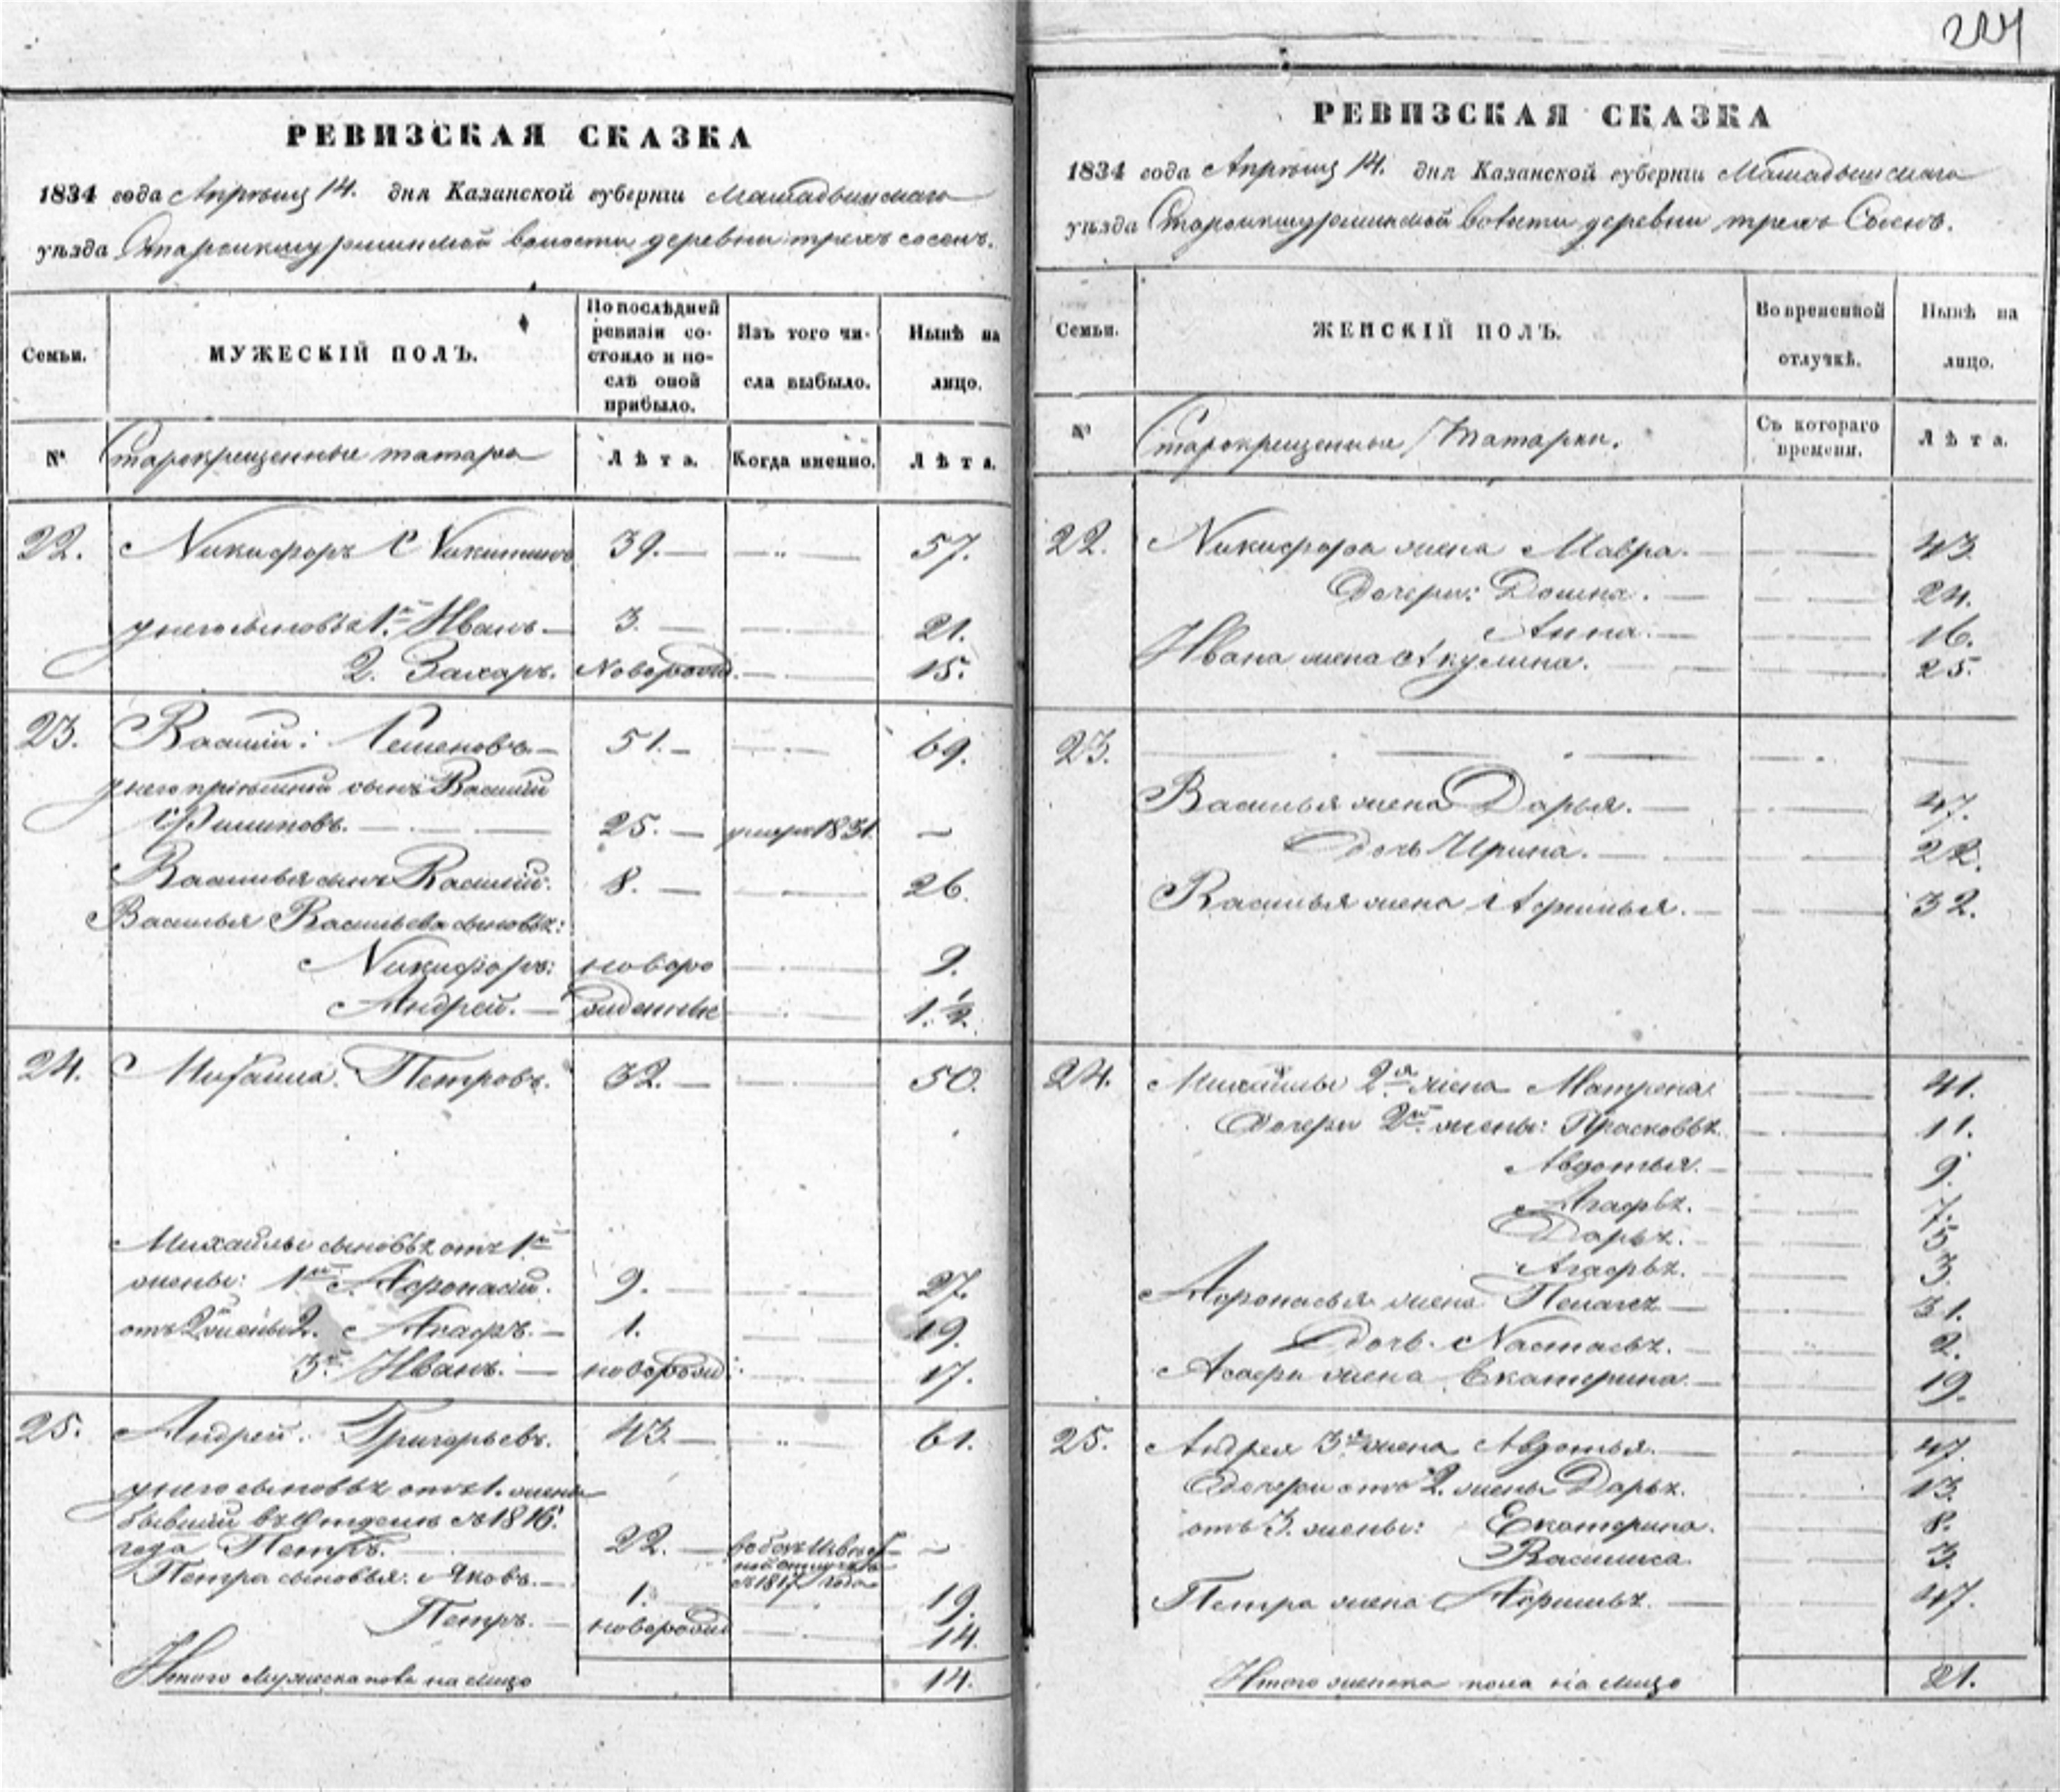 224
РЕВИЗСКАЯ СКАЗКА
1834 года Апрѣля 14. дня Казанской губерніи Мамадышскаго
уѣзда Староикшурминской волости деревни трехъ сосенъ.
Семьи.
МУЖЕСКІЙ ПОЛЪ.
По послѣдней ревизіи состояло и послѣ оной прибыло.
Изъ того числа выбыло.
Нынѣ на лицо.
№
Старокрещенные татара
Лѣта.
Когда именно.
Лѣта.
22. Никифоръ Никитинъ 39. 57.
у него сыновья 1й Иванъ 3. 21.
2. Захаръ. Новорожд. 15.
23. Василій: Семеновъ 51. 69.
у него пріемный сынъ Василій
Филиповъ. 25. умеръ 1831.
Василья сынъ Василій. 8. 26.
Василья Васильева сыновья:
Никифоръ: новоро 9.
Андрей. жденные 1 1/2.
24. Михайла. Петровъ. 32. 50.
Михайлы сыновья отъ 1й
жены: 1й Афонасій. 9. 27.
отъ 2 жены 2. Агафъ. 1. 19.
3й Иванъ. новорожд. 17.
25. Андрей. Григорьевъ. 43. 61.
у него сыновья отъ 1. жены
бывшій въ съ 1816.
года Петръ. 22.
съ 1817 года
Петра сыновья: Яковъ. 1. 19.
Петръ. новорожд 14.
Итого мужеска пола на лицо 14.
РЕВИЗСКАЯ СКАЗКА
1834 года Апрѣля 14. дня Казанской губерніи Мамадышскаго
уѣзда Староикшурминской волости деревни трехъ Сосенъ.
Семьи.
ЖЕНСКІЙ ПОЛЪ.
Во временной отлучкѣ.
Нынѣ на лицо.
№
Старокрещенные Татарки.
Съ котораго времени.
Лѣта.
22. Никифора жена Мавра. 43.
Дочери: Домна. 24.
Анна. 16.
Ивана жена Акулина. 25.
23.
Василья жена Дарья. 47.
Дочь Ирина. 22.
Василья жена Афимья. 32.
24. Михайлы 2я жена Матрена 41.
Дочери 2й жены: Прасковья 11.
Авдотья. 9.
Агафья. 7.
Дарья. 5
Агафья. 3.
Афонасья жена Пелагея 31.
Дочь. Настасья. 2.
Агафа жена Екатерина. 19.
25. Андрея 3я жена Авдотья. 47.
Дочери отъ 2. жены Дарья. 13.
отъ 3. жены: Екатерина. 8.
Василиса 3.
Петра жена Афимья. 47.
Итого женска пола на лицо 21.